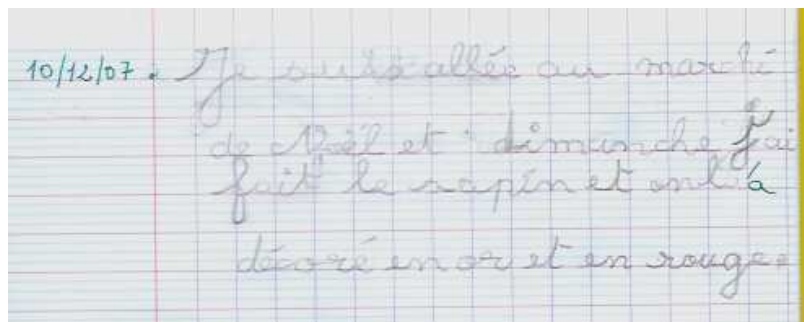 10/12/07. Je suis allée au marché
de Noël et dimanche j'ai
fait le sapin et on l'a
décoré en or et en rouge.